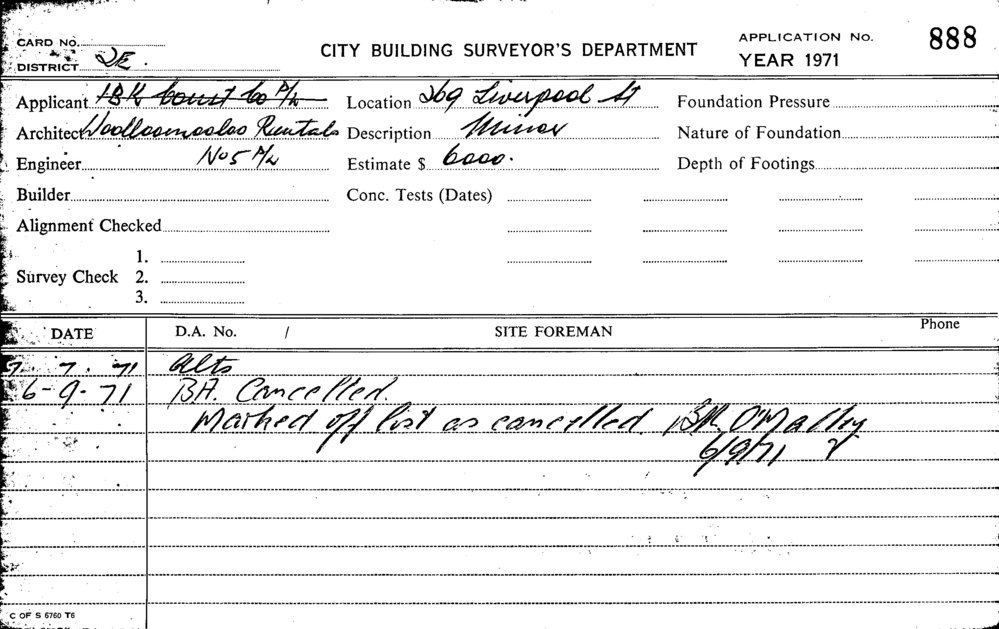 CARD No. CITY BUILDING SURVEYOR'S DEPARTMENT APPLICATION No. 888
DISTRICT 2E. YEAR 1971
Applicant IBK Const Co P/L Location 269 Liverpool St Foundation Pressure
Architect Woolloomooloo Rentals Description Minor Nature of Foundation
Engineer No 5 P/L Estimate $ 6000. Depth of Footings
Builder Conc. Tests (Dates)
Alignment Checked
1.
Survey Check 2.
3.
DATE D.A. No. / SITE FOREMAN Phone
7. 7. 71 Alts
6-9-71 BA. Cancelled.
Marked off list as cancelled. O'Malley
6/9/71
C OF S 6760 T6